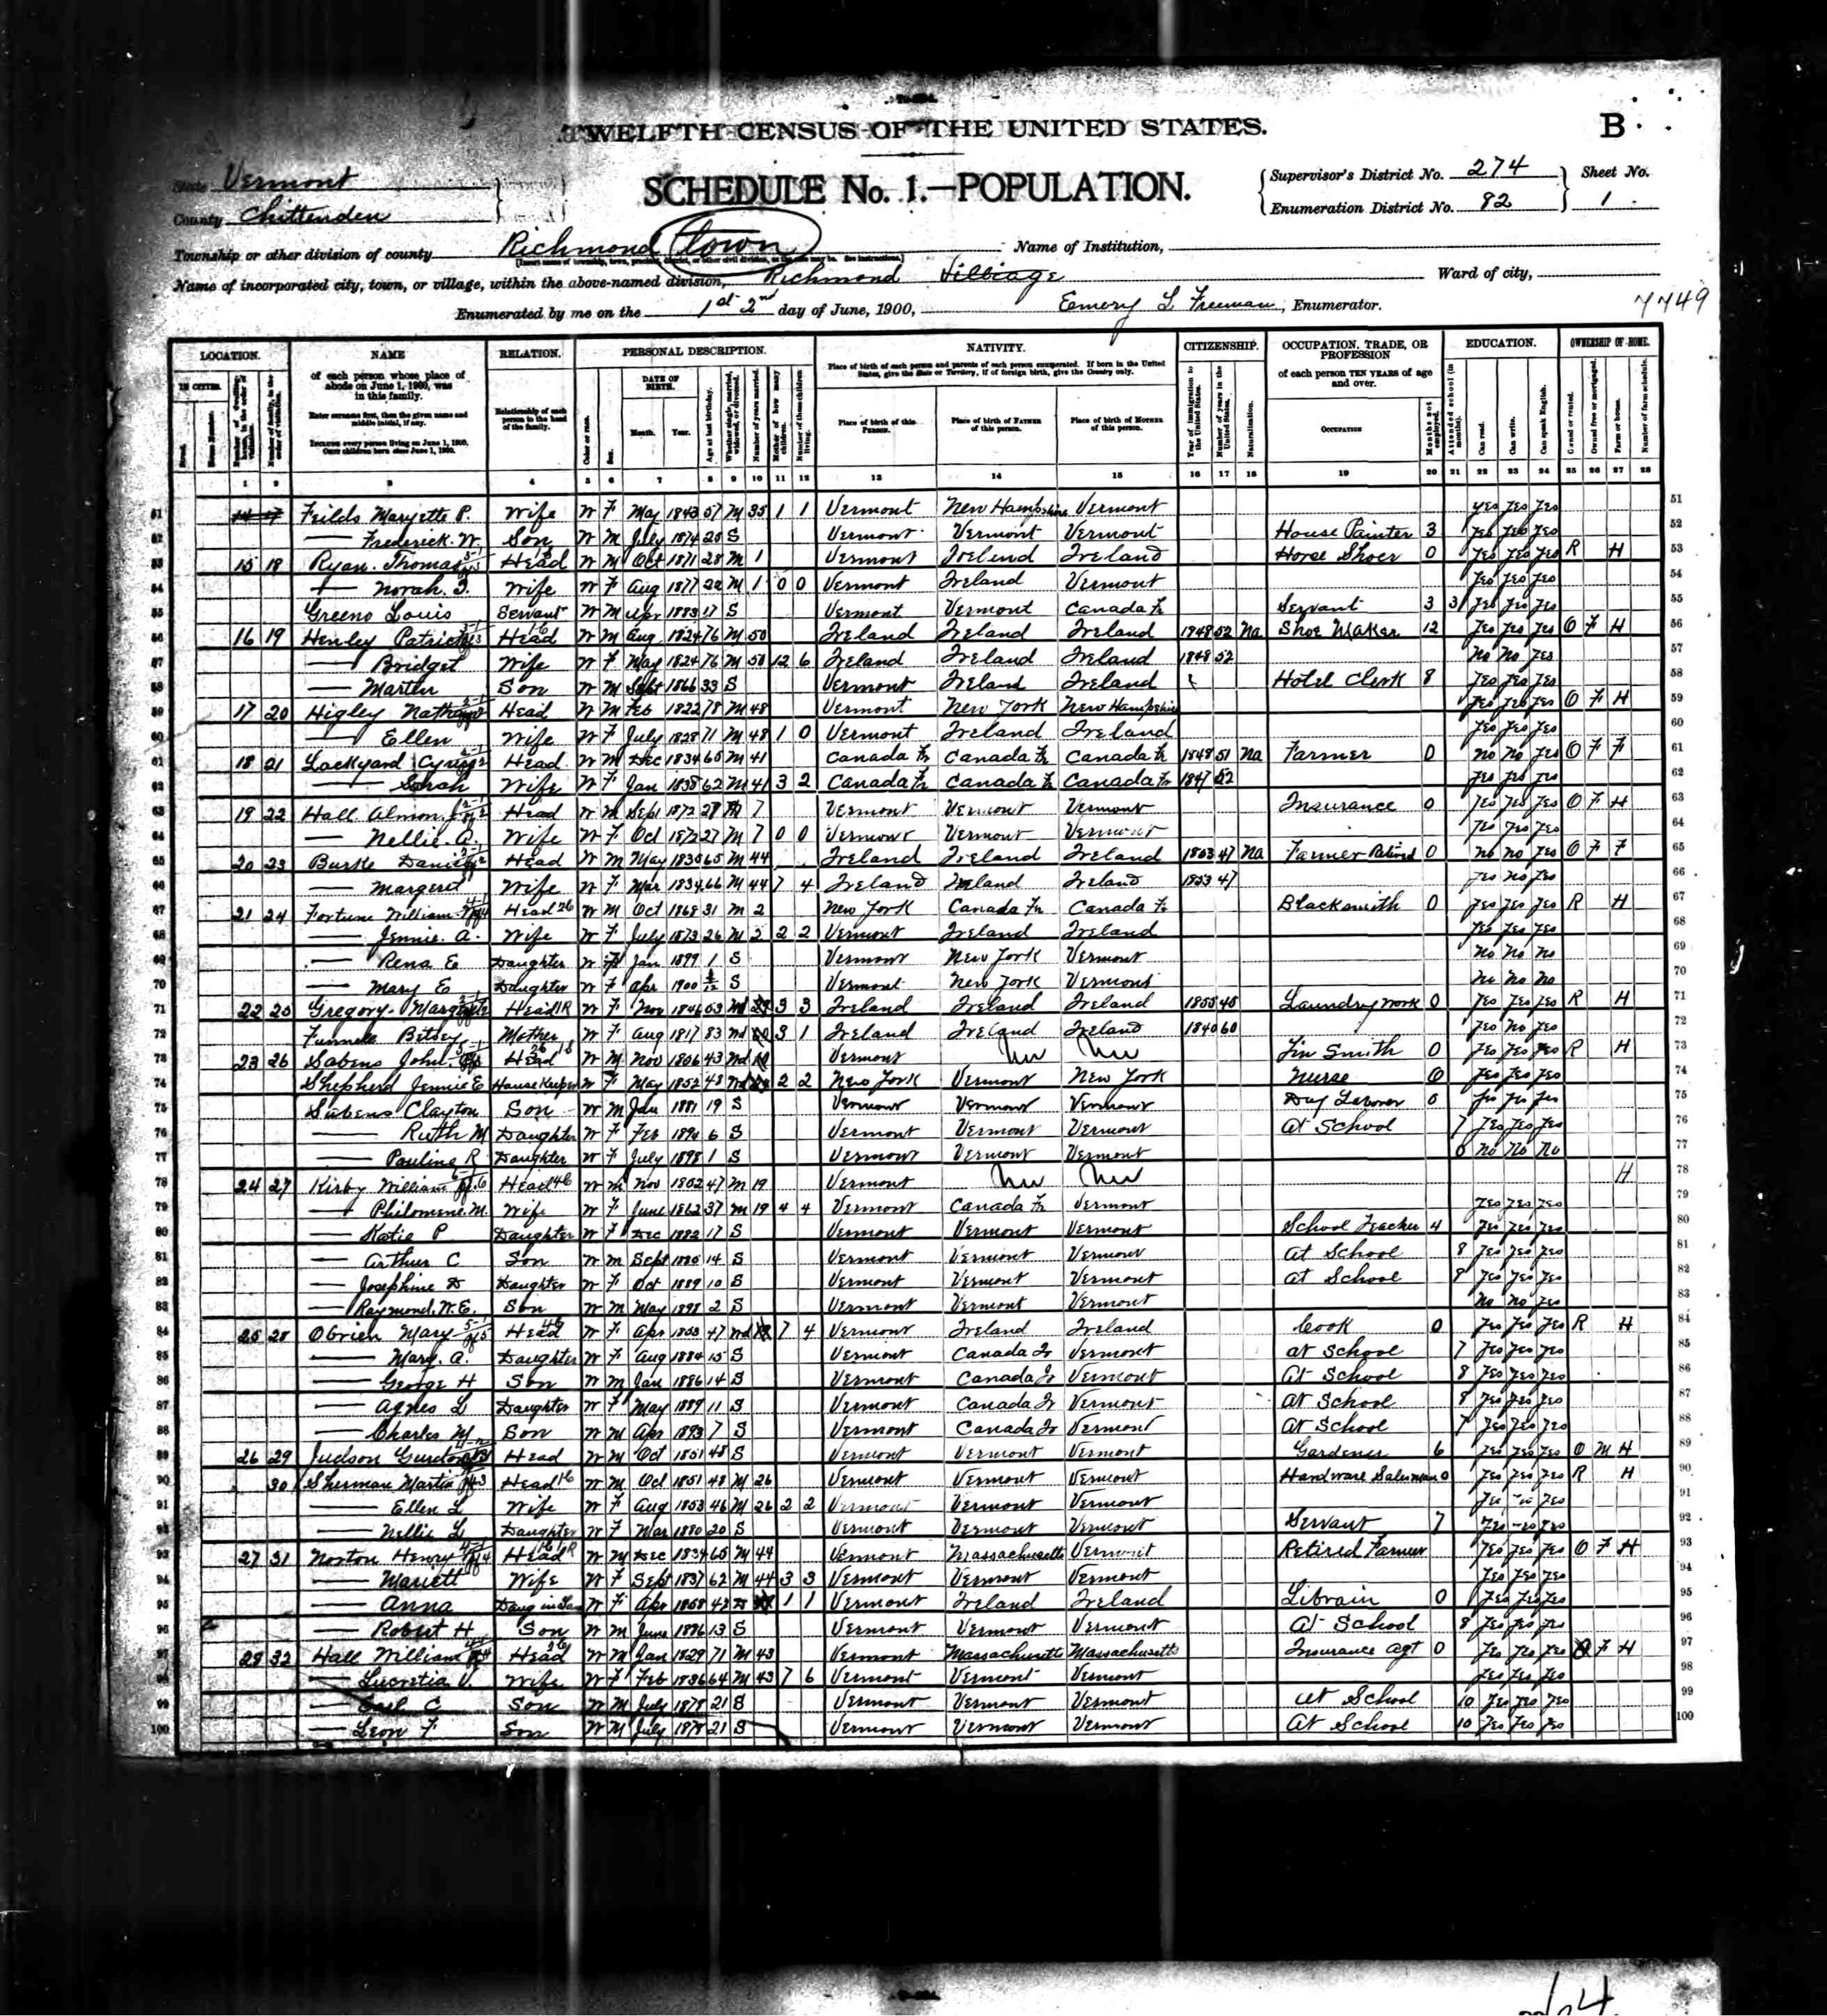 TWELFTH CENSUS OF THE UNITED STATES.
B
State Vermont
County Chittenden
SCHEDULE No. 1.—POPULATION.
Supervisor's District No. 274
Enumeration District No. 82
Sheet No. 1
Township or other division of county Richmond town Name of Institution,
Name of incorporated city, town, or village, within the above-named division, Richmond Villiage Ward of city,
Enumerated by me on the 1st 2nd day of June, 1900, Emery L Freeman, Enumerator.
7749
LOCATION. NAME RELATION. PERSONAL DESCRIPTION. NATIVITY. CITIZENSHIP. OCCUPATION, TRADE, OR PROFESSION EDUCATION. OWNERSHIP OF HOME.
of each person whose place of abode on June 1, 1900, was in this family.
Enter surname first, then the given name and middle initial, if any.
Include every person living on June 1, 1900. Omit children born since June 1, 1900.
Relationship of each person to the head of the family.
DATE OF BIRTH. Month. Year.
Place of birth of each person and parents of each person enumerated. If born in the United States, give the State or Territory; if of foreign birth, give the Country only.
Place of birth of this PERSON. Place of birth of FATHER of this person. Place of birth of MOTHER of this person.
of each person TEN YEARS of age and over.
OCCUPATION
1 2 3 4 5 6 7 8 9 10 11 12 13 14 15 16 17 18 19 20 21 22 23 24 25 26 27 28
51 14 17 Feilds Maryette P. Wife W F May 1843 57 M 35 1 1 Vermont New Hampshire Vermont yes yes yes 51
52 — Frederick. W. Son W M July 1874 25 S Vermont Vermont Vermont House Painter 3 yes yes yes 52
53 15 18 Ryan. Thomas Head W M Oct 1871 28 M 1 Vermont Irelend Ireland Horse Shoer 0 yes yes yes R H 53
54 — Norah. Wife W F Aug 1877 22 M 1 0 0 Vermont Ireland Vermont yes yes yes 54
55 Greeno Louis Servant W M Apr 1883 17 S Vermont Vermont Canada Fr Servant 3 3 yes yes yes 55
56 16 19 Henley Patrick Head W M Aug 1824 76 M 50 Ireland Ireland Ireland 1848 52 Na Shoe Maker 12 yes yes yes O F H 56
57 — Bridget Wife W F May 1824 76 M 50 12 6 Ireland Ireland Ireland 1848 52 No No yes 57
58 — Martin Son W M Sept 1866 33 S Vermont Ireland Ireland Hotel Clerk 8 yes yes yes 58
59 17 20 Higley Nathan Head W M Feb 1822 78 M 48 Vermont New York New Hampshire yes yes yes O F H 59
60 — Ellen Wife W F July 1828 71 M 48 1 0 Vermont Ireland Ireland yes yes yes 60
61 18 21 Lackyard Head W M Dec 1834 65 M 41 Canada Fr Canada Fr Canada Fr 1848 51 Na Farmer 0 no no yes O F F 61
62 — Sarah Wife W F Jan 1838 62 M 41 3 2 Canada Fr Canada Fr Canada Fr 1847 52 yes yes yes 62
63 19 22 Hall Almon Head W M Sept 1872 27 M 7 Vermont Vermont Vermont Insurance 0 yes yes yes O F H 63
64 — Nellie. A. Wife W F Oct 1872 27 M 7 0 0 Vermont Vermont Vermont yes yes yes 64
65 20 23 Burke Daniel Head W M May 1835 65 M 44 Ireland Ireland Ireland 1853 47 Na Farmer Retired 0 no no yes O F F 65
66 — Margeret Wife W F Mar 1834 66 M 44 7 4 Ireland Ireland Ireland 1853 47 yes no yes 66
67 21 24 Fortune William Head W M Oct 1868 31 M 2 New York Canada Fr Canada Fr Blacksmith 0 yes yes yes R H 67
68 — Jennie. A. Wife W F July 1873 26 M 2 2 2 Vermont Ireland Ireland yes yes yes 68
69 — Rena E Daughter W F Jan 1899 1 S Vermont New York Vermont no no no 69
70 — Mary E Daughter W F Apr 1900 S Vermont New York Vermont no no no 70
71 22 25 Gregory Head W F Nov 1846 53 Wd 3 3 Ireland Ireland Ireland 1855 45 Laundry work 0 yes yes yes R H 71
72 Betsey Mother W F Aug 1817 83 Wd 3 1 Ireland Ireland Ireland 1840 60 yes no yes 72
73 23 26 Sabens John Head W M Nov 1856 43 Wd Vermont Tin Smith 0 yes yes yes R H 73
74 Shepherd Jennie E House Keeper W F May 1852 48 Wd 2 2 New York Vermont New York Nurse 6 yes yes yes 74
75 Sabens Clayton Son W M Jan 1881 19 S Vermont Vermont Vermont Day Laborer 0 yes yes yes 75
76 — Ruth M Daughter W F Feb 1894 6 S Vermont Vermont Vermont At School 7 yes yes yes 76
77 — Pauline R Daughter W F July 1898 1 S Vermont Vermont Vermont 0 no no no 77
78 24 27 Kirby William Head W M Nov 1852 47 M 19 Vermont H 78
79 — Philomene. M. Wife W F June 1862 37 M 19 4 4 Vermont Canada Fr Vermont yes yes yes 79
80 — Katie P Daughter W F Dec 1882 17 S Vermont Vermont Vermont School Teacher 4 yes yes yes 80
81 — Arthur C Son W M Sept 1885 14 S Vermont Vermont Vermont At School 8 yes yes yes 81
82 — Josephine D Daughter W F Oct 1889 10 S Vermont Vermont Vermont At School 8 yes yes yes 82
83 — Raymond. W. E. Son W M May 1898 2 S Vermont Vermont Vermont no no yes 83
84 25 28 Obrien Mary Head W F Apr 1853 47 Wd 7 4 Vermont Ireland Ireland Cook 0 yes yes yes R H 84
85 — Mary. A. Daughter W F Aug 1884 15 S Vermont Canada Fr Vermont At School 7 yes yes yes 85
86 — George H Son W M Jan 1886 14 S Vermont Canada Fr Vermont At School 8 yes yes yes 86
87 — Agnes L Daughter W F May 1889 11 S Vermont Canada Fr Vermont At School 8 yes yes yes 87
88 — Charles M Son W M Apr 1893 7 S Vermont Canada Fr Vermont At School 7 yes yes yes 88
89 26 29 Judson Gurdon Head W M Oct 1851 48 S Vermont Vermont Vermont Gardener 6 yes yes yes O M H 89
90 30 Sherman Martin Head W M Oct 1851 48 M 26 Vermont Vermont Vermont Hardware Salesman 0 yes yes yes R H 90
91 — Ellen L Wife W F Aug 1853 46 M 26 2 2 Vermont Vermont Vermont yes yes 91
92 — Nellie L Daughter W F Mar 1880 20 S Vermont Vermont Vermont Servant 7 yes yes yes 92
93 27 31 Norton Henry Head W M Dec 1834 65 M 44 Vermont Massachusetts Vermont Retired Farmer yes yes yes O F H 93
94 — Mariett Wife W F Sept 1837 62 M 44 3 3 Vermont Vermont Vermont yes yes yes 94
95 — Anna Daug in Law W F Apr 1858 42 D 1 1 Vermont Ireland Ireland Librain 0 yes yes yes 95
96 — Robert H Son W M June 1886 13 S Vermont Vermont Vermont At School 8 yes yes yes 96
97 28 32 Hall William Head W M Jan 1829 71 M 43 Vermont Massachusetts Massachusetts Insurance Agt 0 yes yes yes O F H 97
98 — Lucretia V. Wife W F Feb 1836 64 M 43 7 6 Vermont Vermont Vermont yes yes yes 98
99 — Earl C Son W M July 1878 21 S Vermont Vermont Vermont at School 10 yes yes yes 99
100 — Leon F Son W M July 1878 21 S Vermont Vermont Vermont At School 10 yes yes yes 100